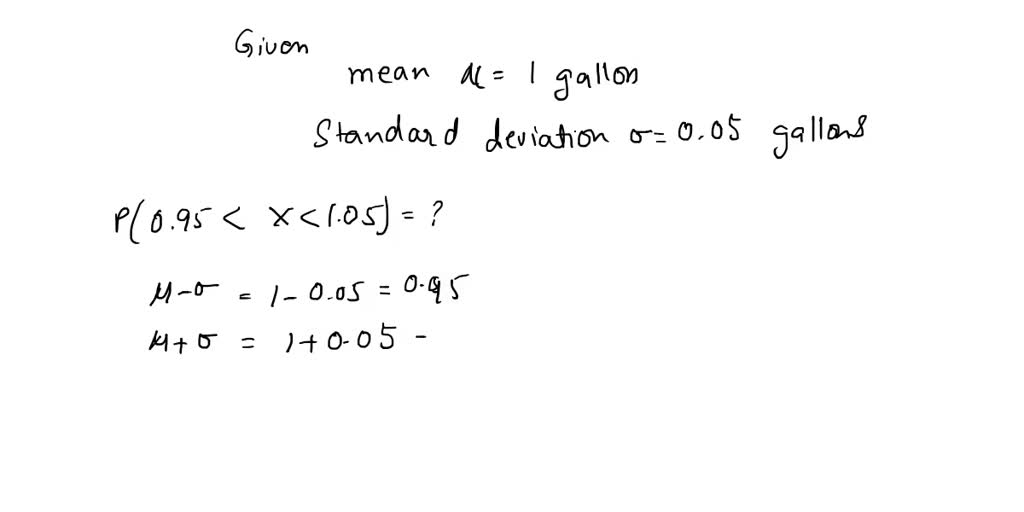 Given
mean μ = 1 gallon
Standard deviation σ = 0.05 gallons
P(0.95 < X < 1.05) = ?
μ - σ = 1 - 0.05 = 0.95
μ + σ = 1 + 0.05 -